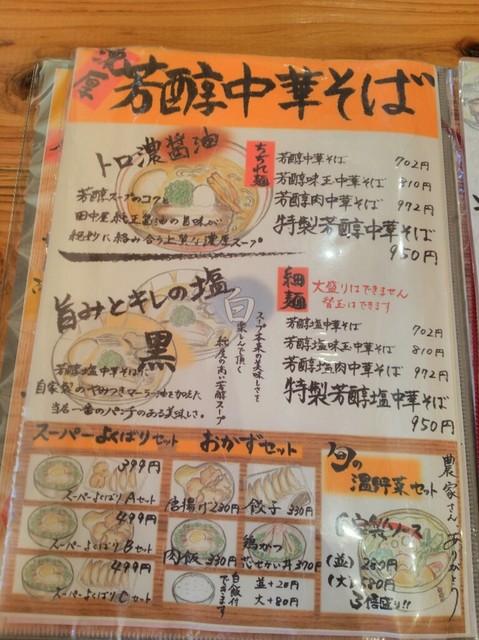 濃厚
芳醇中華そば
トロ濃醤油
芳醇スープのコクと
田中屋純正醤油の旨味が
絶妙に絡み合う上質な濃厚スープ。
ちぢれ麺
芳醇中華そば 702円
芳醇味玉中華そば 810円
芳醇肉中華そば 972円
特製芳醇中華そば
950円
旨みとキレの塩
白
スープ本来の美味しさを
楽しんで頂く
純度の高い芳醇スープ
黒
芳醇塩中華そば
自家製のやみつきマーラー油を加えた
当店一番のパンチのある美味しさ。
細麺
大盛りはできません
替玉はできます
芳醇塩中華そば 702円
芳醇塩味玉中華そば 810円
芳醇塩肉中華そば 972円
特製芳醇塩中華そば
950円
スーパーよくばりセット
399円
スーパーよくばりAセット
499円
スーパーよくばりBセット
499円
スーパーよくばりCセット
おかずセット
唐揚げ230円
餃子330円
肉飯330円
鶏かつ
丼370円
白飯付
できます
並+20円
大+80円
旬の
温野菜セット
農家さんありがとう
自家製ソース
(並)280円
(大)580円
3倍盛り!!